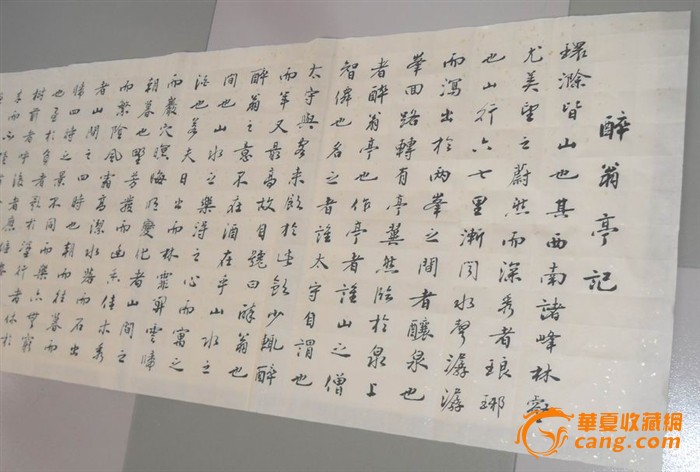 醉翁亭記
環滁皆山也其西南諸峰林壑
尤美望之蔚然而深秀者琅琊
也山行六七里漸聞水聲潺潺
而瀉出於兩峯之間者釀泉也
峯回路轉有亭翼然臨於泉上
者醉翁亭也作亭者誰山之僧
智僊也名之者誰太守自謂也
太守與客來飲於此飲少輒醉
而年又最高故自號曰醉翁也
醉翁之意不在酒在乎山水之
間也山水之樂得之心而寓之
酒也若夫日出而林霏開雲歸
而巖穴暝晦明變化者山間之
朝暮也野芳發而幽香佳木秀
而繁陰風霜高潔水落而石出
者山間之四時也朝而往暮而
歸四時之景不同而樂亦無窮
也至於負者歌於塗行者休於
樹前者呼後者應
華夏收藏網
cang.com